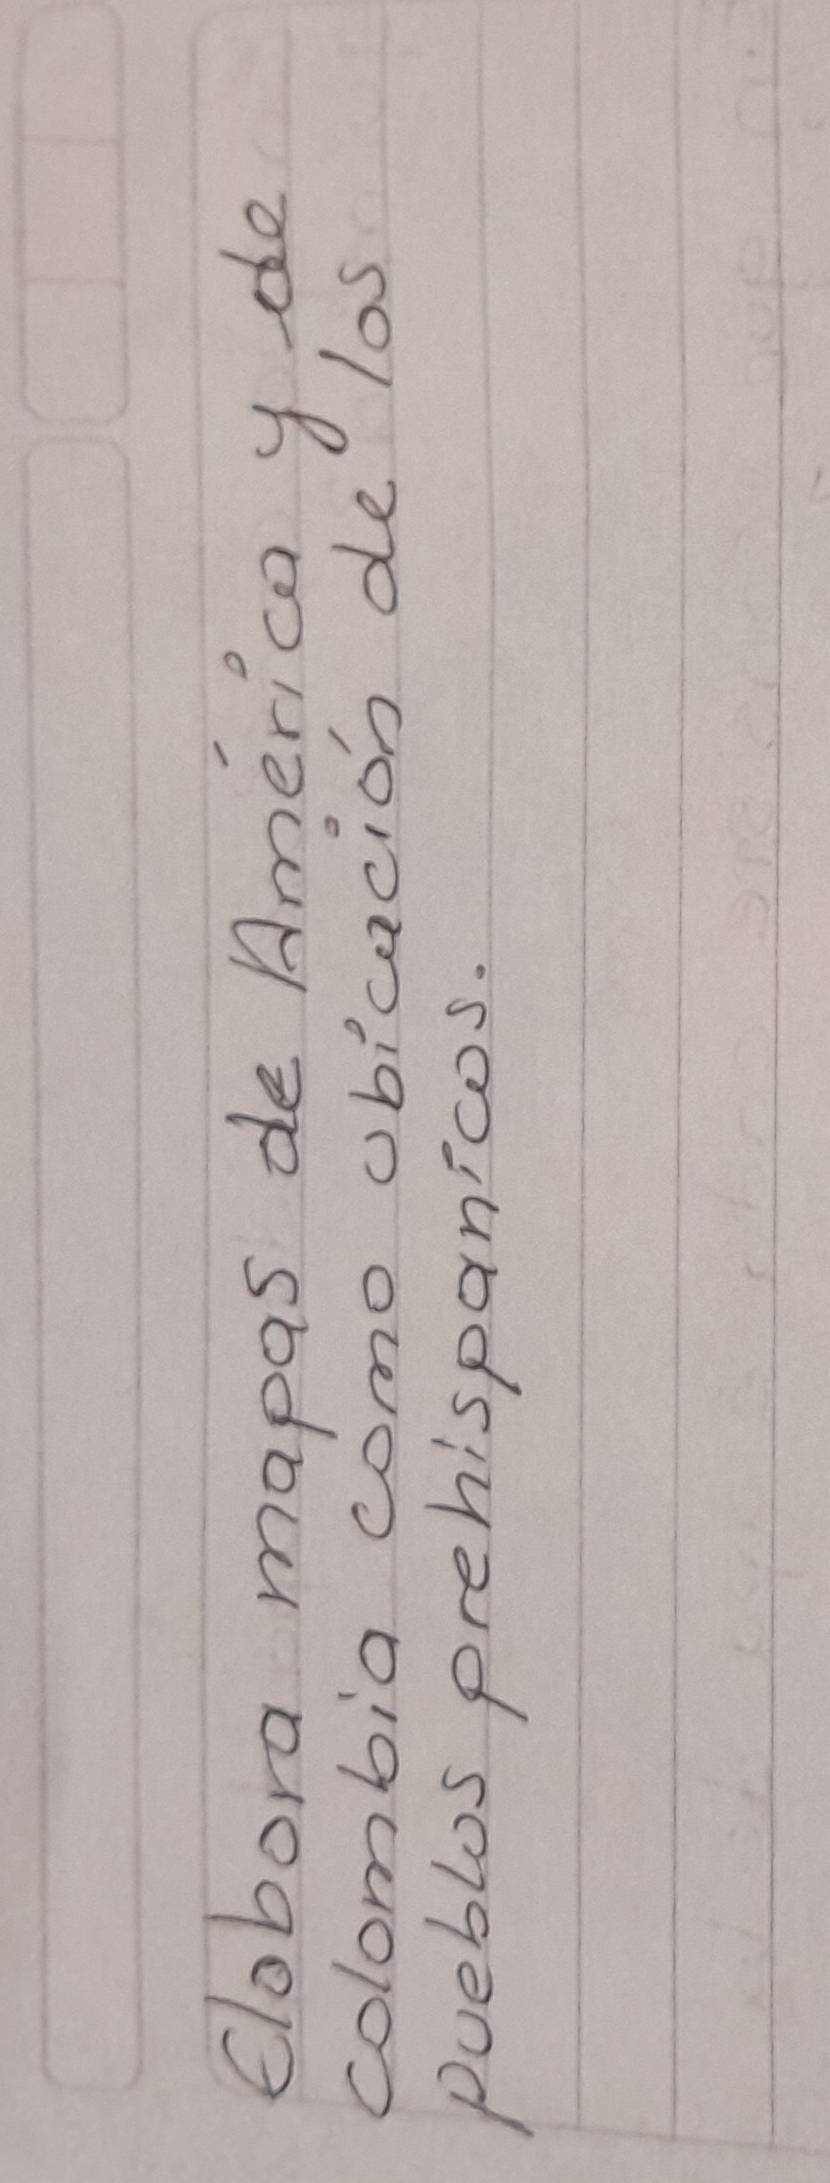 Elabora mapas de América y de
colombia como ubicación de los
pueblos prehispanicos.